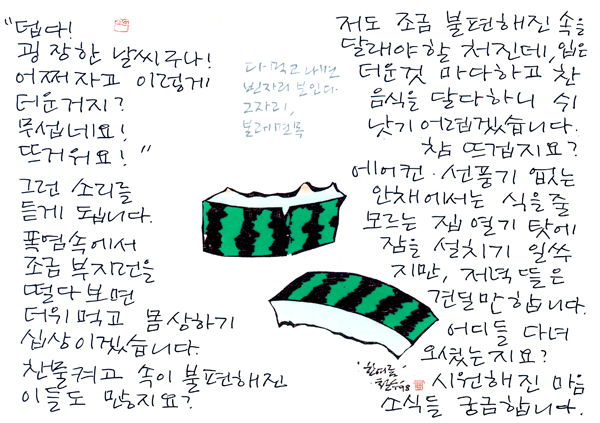 "덥다!
굉장한 날씨구나!
어쩌자고 이렇게
더운거지?
무섭네요!
뜨거워요!"
그런 소리를
듣게 됩니다.
폭염속에서
조금 부지런을
떨다보면
더위먹고 몸상하기
십상이겠습니다.
찬물켜고 속이 불편해진
이들도 많지요?
다 먹고 나면
빈자리 보인다.
그자리,
볼레면목
저도 조금 불편해진 속을
달래야할 처진데, 입은
더운것 마다하고 찬
음식을 달다하니 쉬
낫기 어렵겠습니다.
참 뜨겁지요?
에어컨·선풍기 없는
안채에서는 식을줄
모르는 집 열기 탓에
잠을 설치기 일쑤
지만, 저녁 뜰은
견딜만합니다.
어디들 다녀
오셨는지요?
시원해진 마음
소식들 궁금합니다.
'한여름'
철수 98